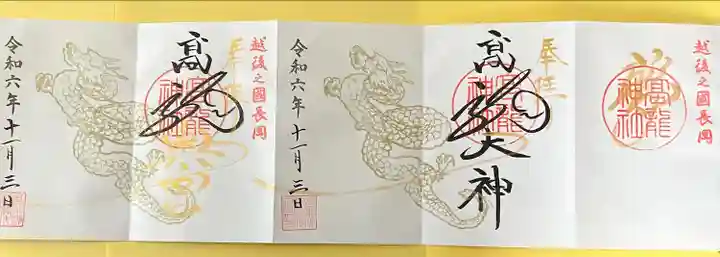 越後之國長岡
高龍神社
奉拝
高龍大神
令和六年十一月三日
越後之國長岡
高龍神社
奉拝
高龍
令和六年十一月三日